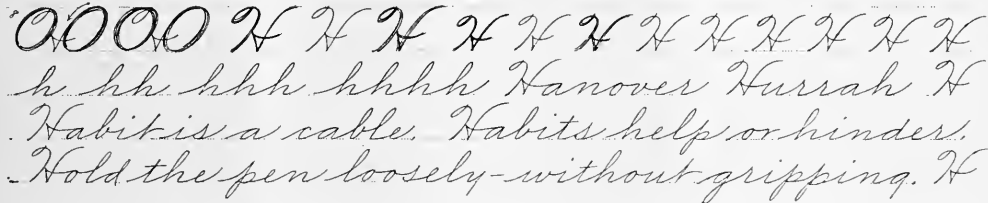 OOOO H H H H H H H H H H H H
h hh hhh hhhh Hanover Hurrah H
Habit is a cable. Habits help or hinder.
Hold the pen loosely-without gripping. H